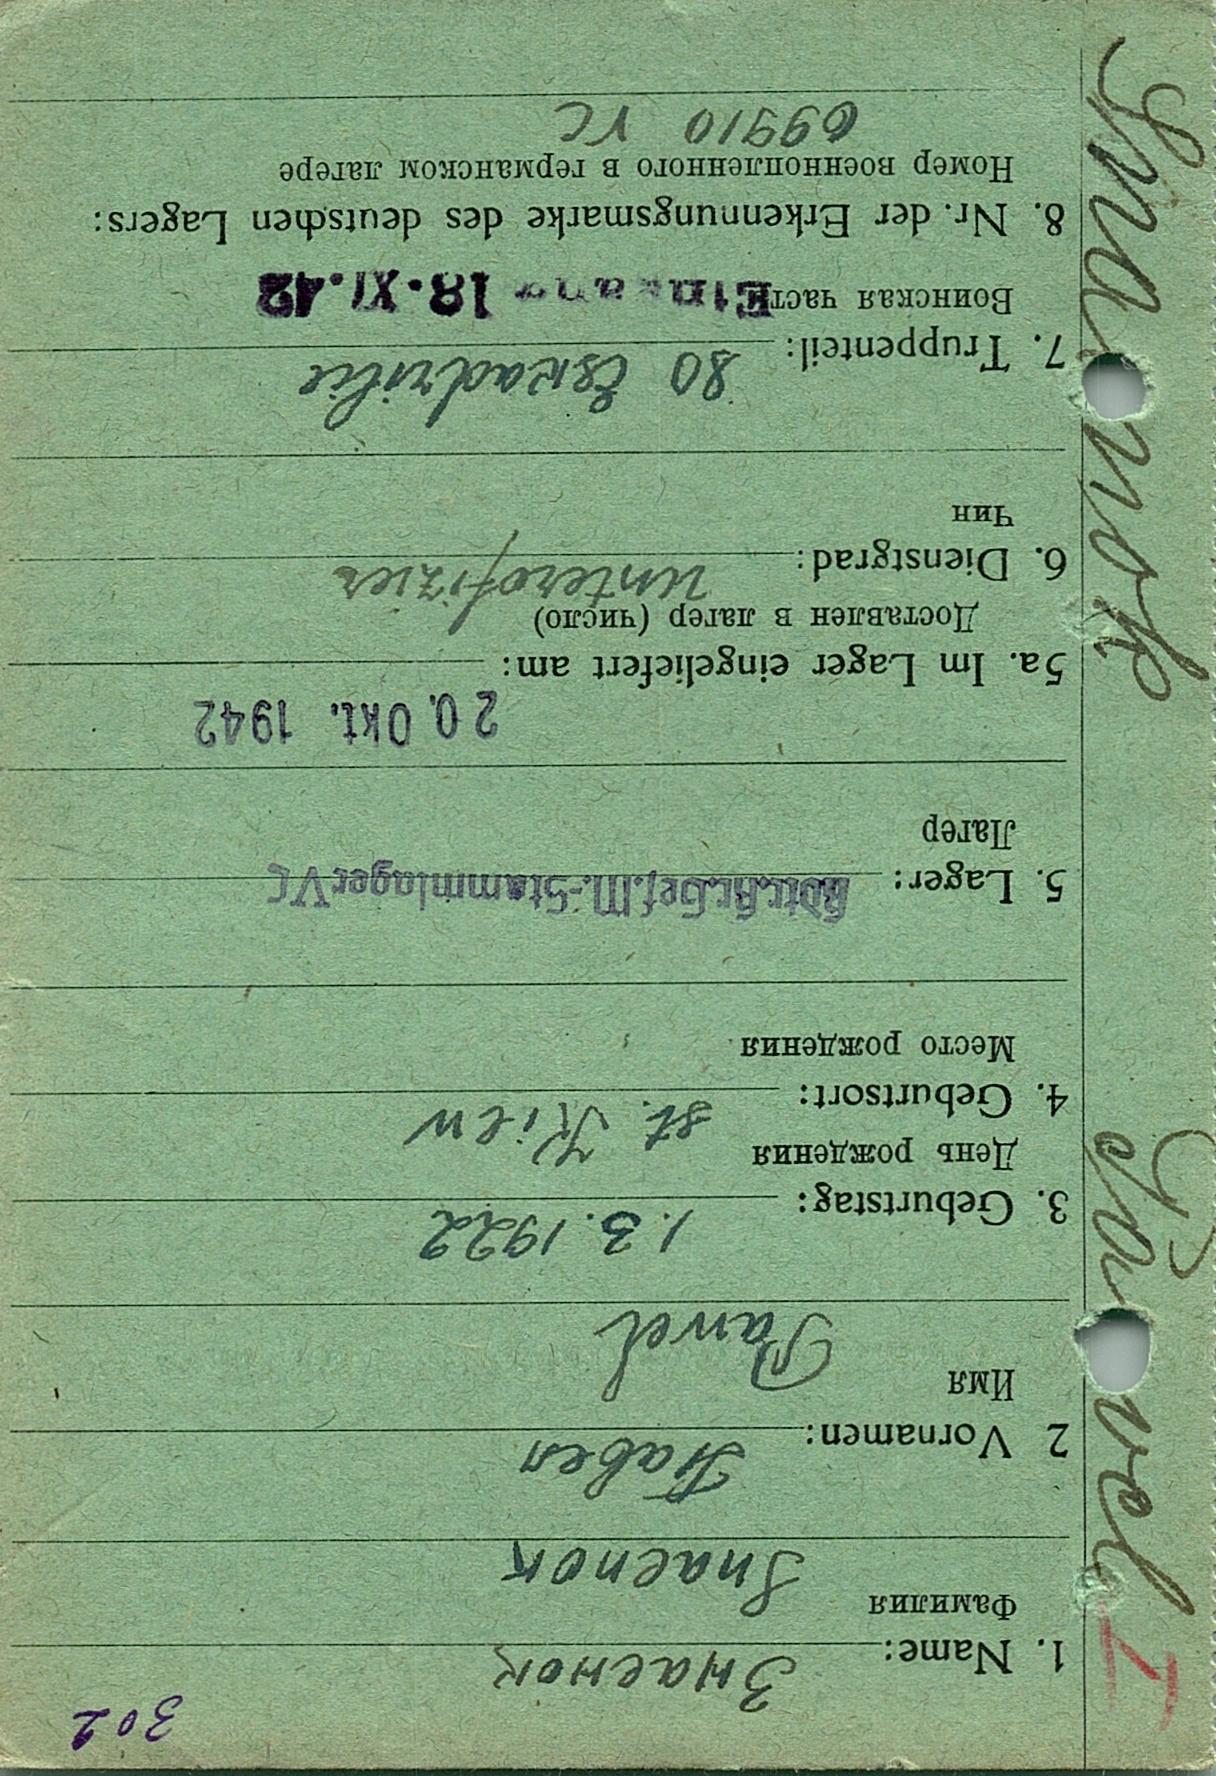 302
1. Name: Знаенок
Фамилия
Snaenok
2 Vornamen: Павел
Имя
Pawel
3. Geburtstag: 1.3.1922
День рождения
4. Geburtsort: st. Kiew
Место рождения
5. Lager: Kdtr.Kr.Gef.M.-Stammlager VC
Лагер
5a. Im Lager eingeliefert am: 20. Okt. 1942
Доставлен в лагер (число)
6. Dienstgrad: Unterofizier
Чин
7. Truppenteil: 80 Eskadrilie
Воинская часть
18.XI.42
8. Nr. der Erkennungsmarke des deutschen Lagers:
Номер военнопленного в германском лагере
69910 VC
I Pavel Snaenok